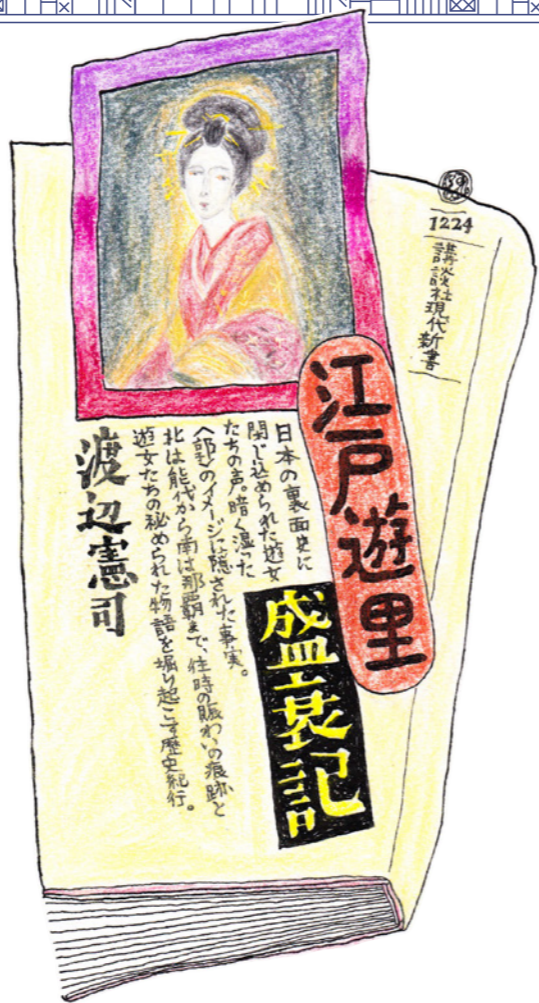 1224
講談社現代新書
江戸遊里
盛衰記
日本の裏面史に
閉じ込められた遊女
たちの声。暗く湿った
〈郭〉のイメージに隠された事実。
北は能代から南は那覇まで、往時の賑わいの痕跡と
遊女たちの秘められた物語を掘り起こす歴史紀行。
渡辺憲司